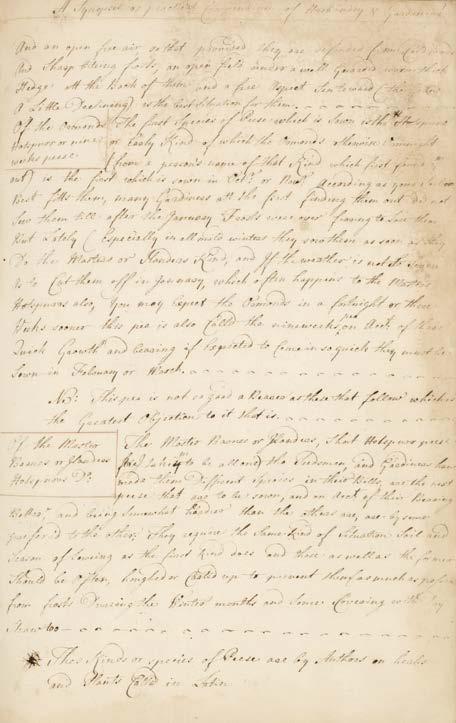 A Synopsis or practical Compendium of Husbandry & Gardening
And an open free air so that provided they are defended from Cold Winds
And Sharp biting frosts, an open field under a well Guarded warm thick
Hedge at the Back of them and a free aspect Sun toward (the
A Little Declining) is the best Situation for them.
Of the Ormonds
Hotspurs or nine
weeks pease.
The first Species of Pease which is Sown is the Hotspurs
or Early Kind of which the Ormonds likewise
(from a person's name of that Kind which first found
out) is the first which is sown in Octr. or Novr. According as your
Best fitts them, many Gardiners at the first finding them out did not
Sow them till after the January Frosts were over
But Lately (Especially in all mild winters they sow them as soon as they
Do the Masters or flanders Kind, and If the weather is not so Severe
As to Cut them off in January, which often happens to the Masters
Hotspurs also, You may Expect the Ormonds in a fortnight or three
Weeks sooner this pea is also Called the nineweeks, on Acct. of their
Quick Growth and bearing if Expected to Come in so quick they must be
Sown in February or March.
Note: This pea is not so good a Bearer as those that follow which is
the Greatest Objection to it that is.
Of the Master
Barnes or flanders
Hotspurs Do.
The Master Barnes or flanders, that Hotspur pease
to be all one tho the Seedsmen and Gardiners have
made them Different Species in their Bills, are the next
pease that are to be sown, and on acct. of their Bearing
Better, and being Somewhat hardier than the others are, are by some
preferred to the other. They require the Same Kind of Situation Soil and
Season of Sowing as the first Kind does and those as well as the former
Should be often, houghed or Earted up to prevent them as much as
from frosts During the Winter months and Some Covering with
Straw too
Thes Kinds or species of Pease are by Authors on herbs
and Plants Call'd in Latin